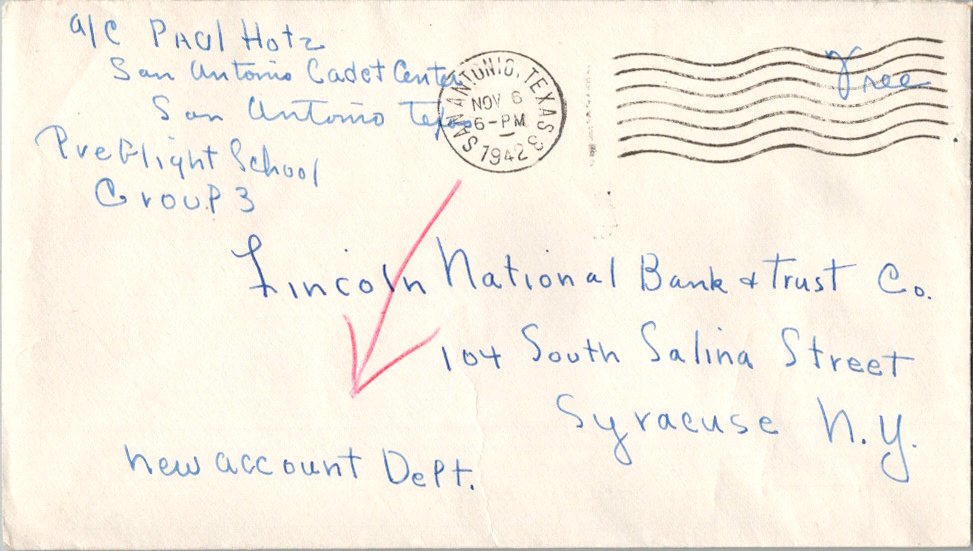 a/c Paul Hotz
San Antonio Cadet Center
San Antonio Texas
Preflight School
Group 3
SAN ANTONIO, TEXAS 3
NOV 6
6-PM
1942
Free
Lincoln National Bank & Trust Co.
104 South Salina Street
Syracuse N.Y.
new account Dept.